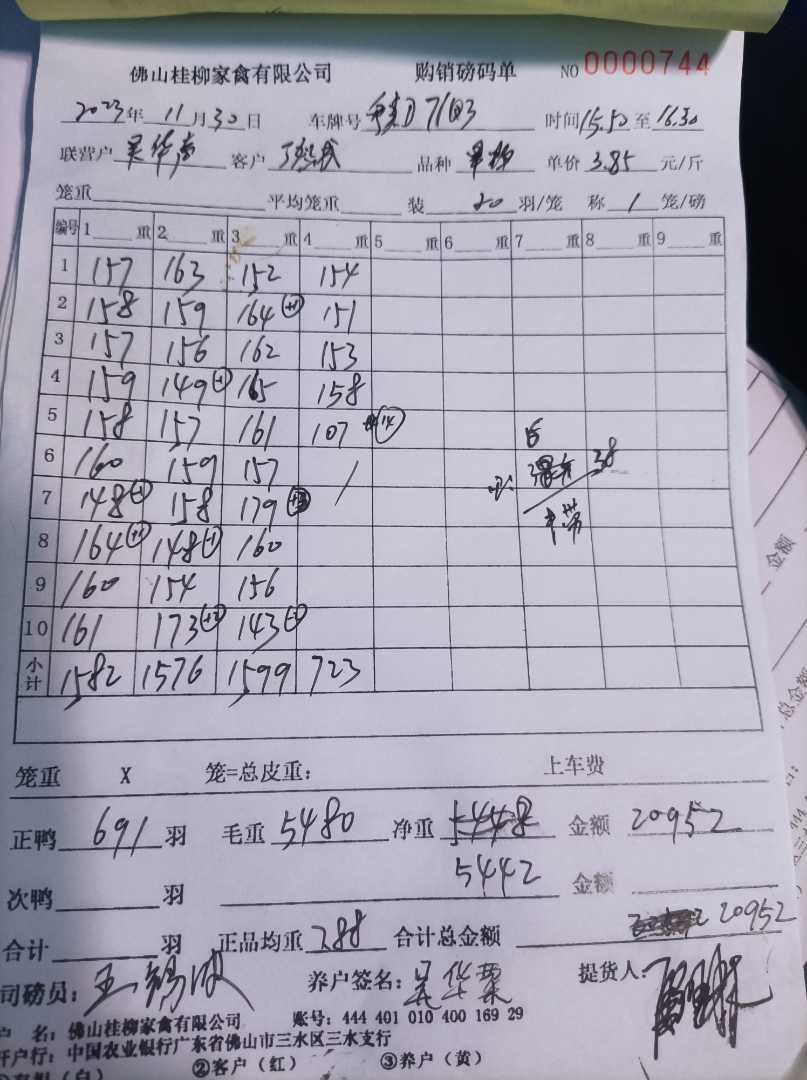 佛山桂柳家禽有限公司 购销磅码单 NO 0000744
2023年 11月30日 车牌号 D71 时间15.50至16.30
联营户 吴华 客户 品种 单价 3.85 元/斤
笼重 平均笼重 装 20 羽/笼 称 1 笼/磅
编号 1 重 2 重 3 重 4 重 5 重 6 重 7 重 8 重 9 重
1 157 163 152 154
2 158 159 164 (+1) 151
3 157 156 162 153
4 159 149 (-1) 165 158
5 158 157 161 107 (14)
6 160 159 157 / 38
7 148 (-1) 158 179
8 164 (+1) 148 (-1) 160
9 160 154 156
10 161 173 (+2) 143
小计 1582 1576 1599 723
笼重 X 笼=总皮重: 上车费
正鸭 691 羽 毛重 5480 净重 5448 金额 20952
次鸭 羽 5442 金额
合计 羽 正品均重 7.88 合计总金额 20952
司磅员: 王锡波 养户签名: 吴华 提货人:
户 名: 佛山桂柳家禽有限公司 账号: 444 401 010 400 169 29
开户行: 中国农业银行广东省佛山市三水区三水支行
②客户（红） ③养户（黄）
金额
总金额